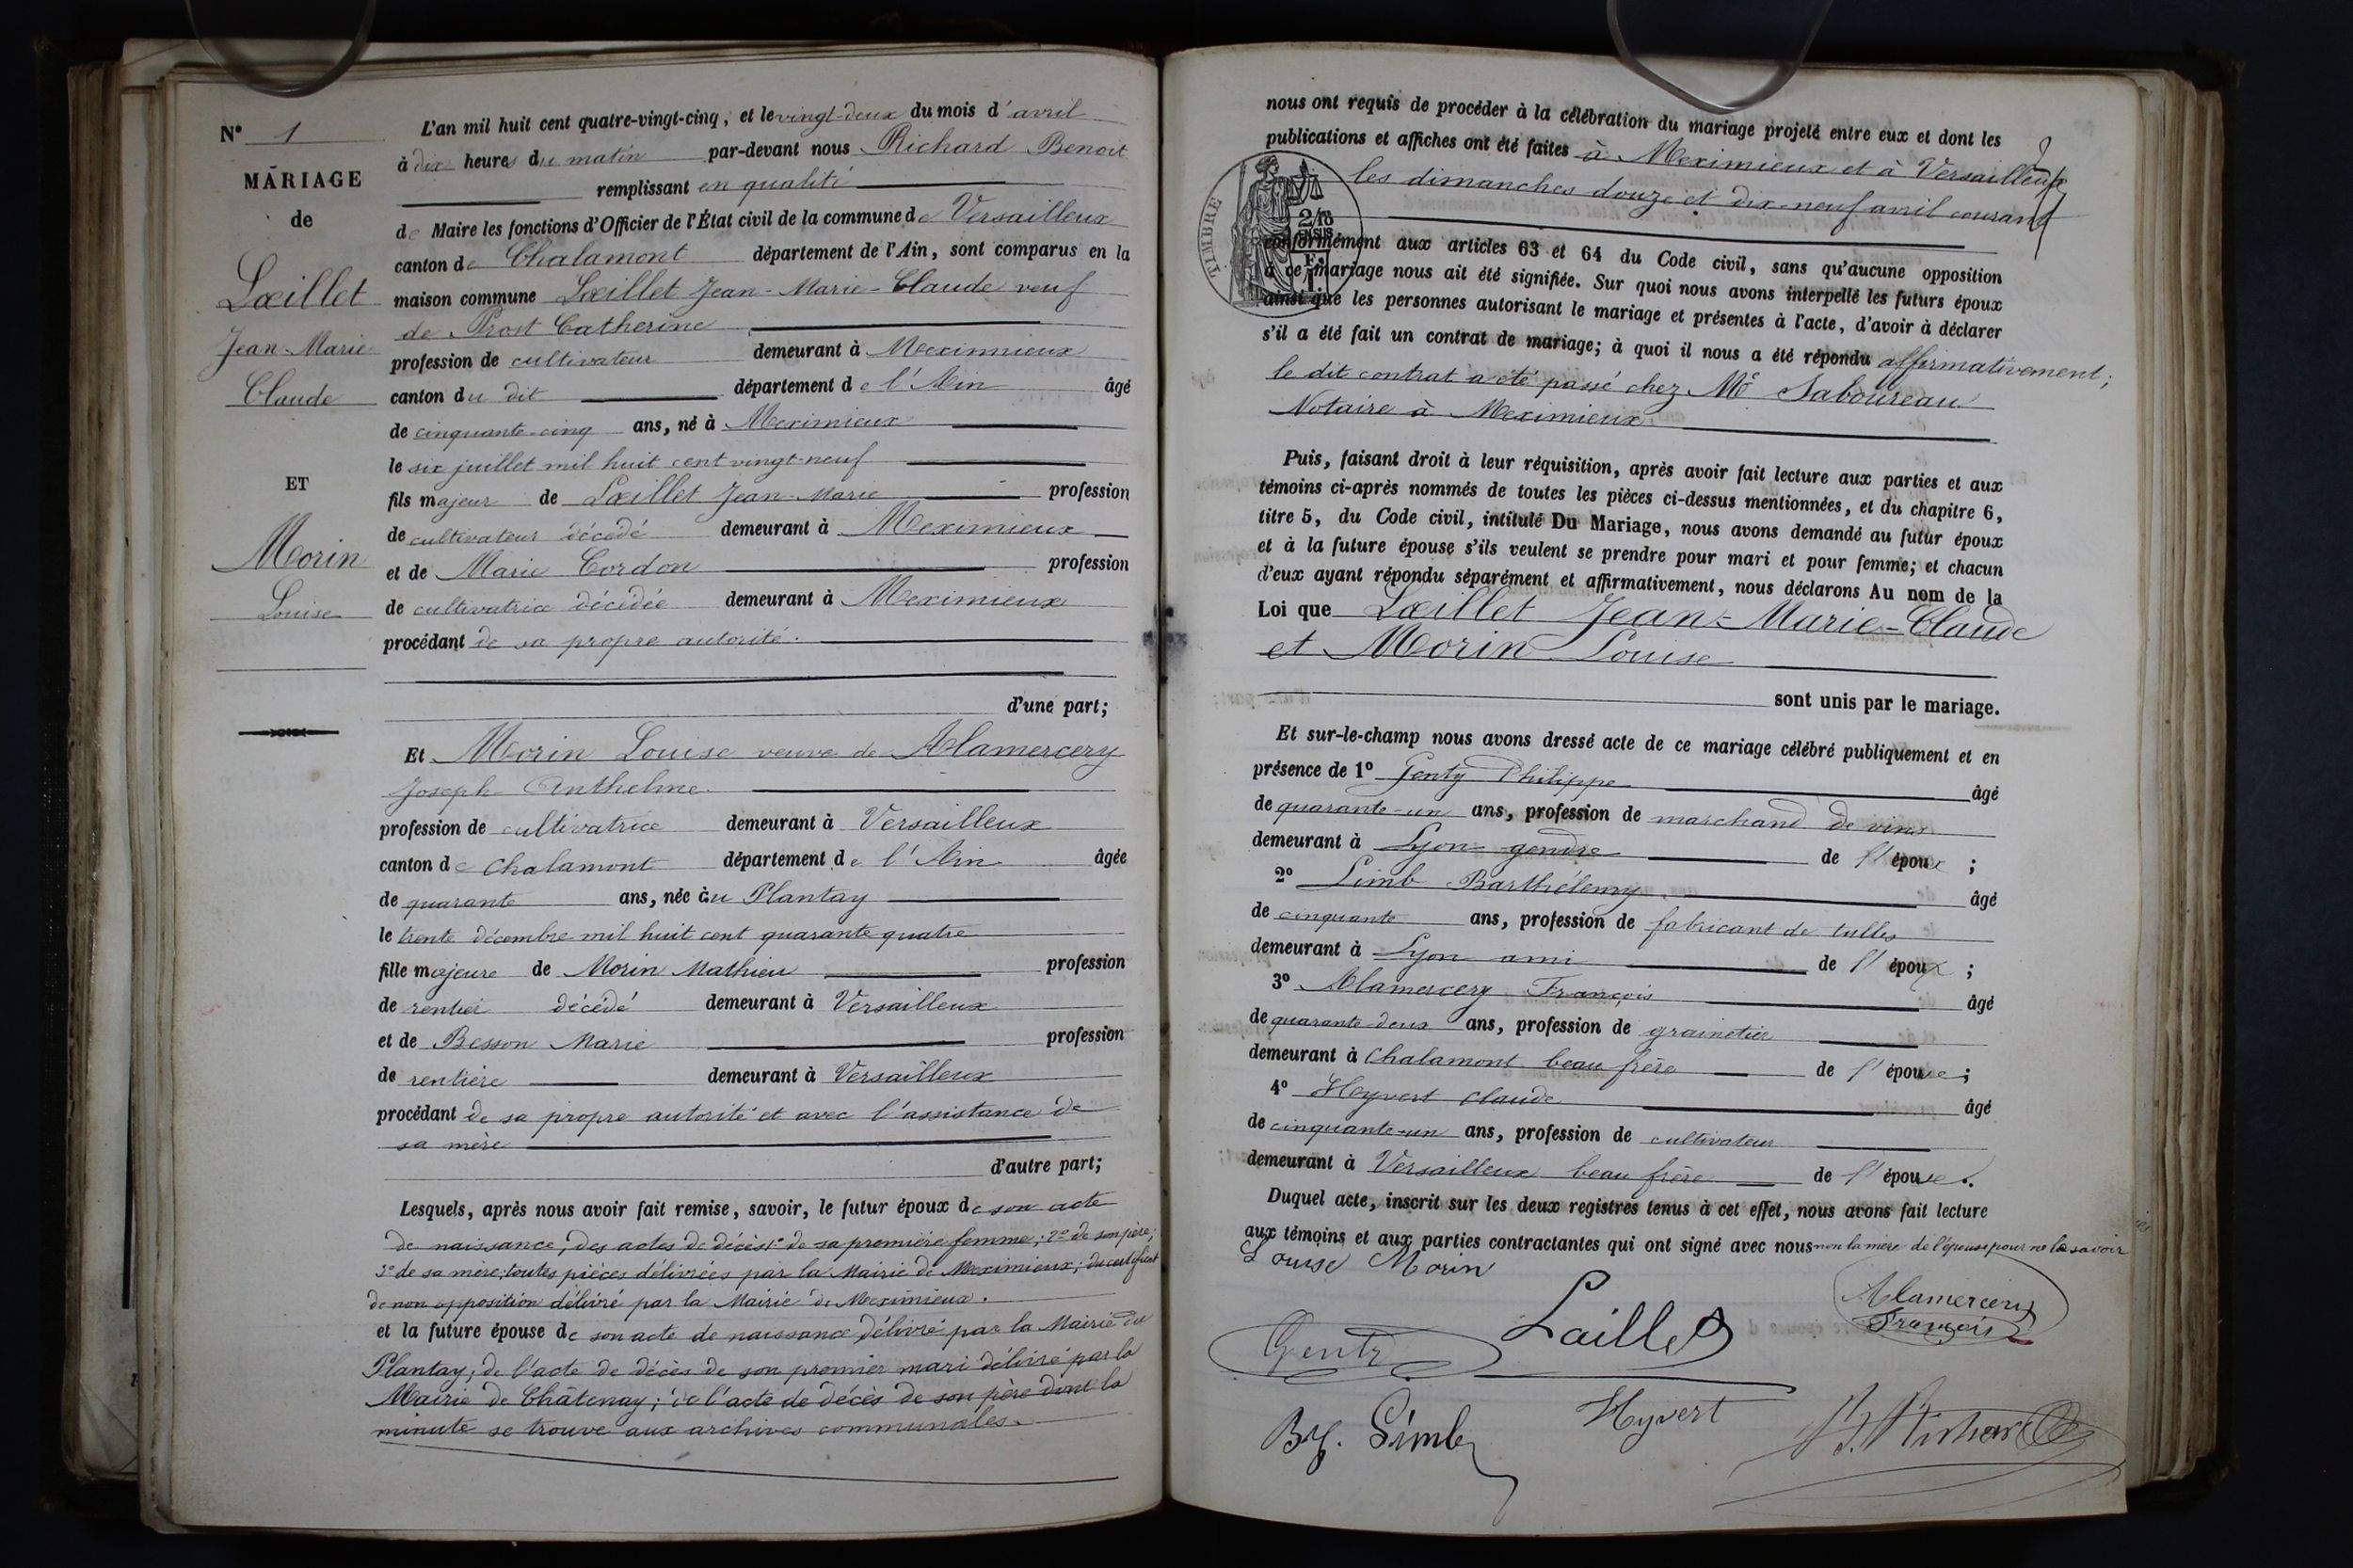 N° 1
MARIAGE
de
Lœillet
Jean-Marie
Claude
ET
Morin
Louise
L'an mil huit cent quatre-vingt-cinq, et le vingt-deux du mois d'avril
à dix heures du matin par-devant nous Richard Benoit
remplissant en qualité
de Maire les fonctions d'Officier de l'État civil de la commune de Versailleux
canton de Chalamont département de l'Ain, sont comparus en la
maison commune Lœillet Jean-Marie-Claude veuf
de Prost Catherine
profession de cultivateur demeurant à Meximieux
canton du dit département de l'Ain âgé
de cinquante-cinq ans, né à Meximieux
le six juillet mil huit cent vingt-neuf
fils majeur de Lœillet Jean-Marie profession
de cultivateur décédé demeurant à Meximieux
et de Marie Cordon profession
de cultivatrice décédée demeurant à Meximieux
procédant de sa propre autorité.
d'une part;
Et Morin Louise veuve de Alamercery
Joseph Anthelme
profession de cultivatrice demeurant à Versailleux
canton de Chalamont département de l'Ain âgée
de quarante ans, née au Plantay
le trente décembre mil huit cent quarante quatre
fille majeure de Morin Mathieu profession
de rentier décédé demeurant à Versailleux
et de Besson Marie profession
de rentière demeurant à Versailleux
procédant de sa propre autorité et avec l'assistance de
sa mère
d'autre part;
Lesquels, après nous avoir fait remise, savoir, le futur époux de son acte
de naissance, des actes de décès 1° de sa première femme; 2° de son père;
3° de sa mère; toutes pièces délivrées par la Mairie de Meximieux; du certificat
de non opposition délivré par la Mairie de Meximieux.
et la future épouse de son acte de naissance délivré par la Mairie du
Plantay; de l'acte de décès de son premier mari délivré par la
Mairie de Châtenay; de l'acte de décès de son père dont la
minute se trouve aux archives communales.
nous ont requis de procéder à la célébration du mariage projeté entre eux et dont les
publications et affiches ont été faites à Meximieux et à Versailleux
les dimanches douze et dix-neuf avril courant
TIMBRE
conformément aux articles 63 et 64 du Code civil, sans qu'aucune opposition
à ce mariage nous ait été signifiée. Sur quoi nous avons interpellé les futurs époux
ainsi que les personnes autorisant le mariage et présentes à l'acte, d'avoir à déclarer
s'il a été fait un contrat de mariage; à quoi il nous a été répondu affirmativement;
le dit contrat a été passé chez Me Saboureau
Notaire à Meximieux
Puis, faisant droit à leur réquisition, après avoir fait lecture aux parties et aux
témoins ci-après nommés de toutes les pièces ci-dessus mentionnées, et du chapitre 6,
titre 5, du Code civil, intitulé Du Mariage, nous avons demandé au futur époux
et à la future épouse s'ils veulent se prendre pour mari et pour femme; et chacun
d'eux ayant répondu séparément et affirmativement, nous déclarons Au nom de la
Loi que Lœillet Jean-Marie-Claude
et Morin Louise
sont unis par le mariage.
Et sur-le-champ nous avons dressé acte de ce mariage célébré publiquement et en
présence de 1° Genty Philippe âgé
de quarante-un ans, profession de marchand de vins
demeurant à Lyon gendre de l'époux;
2° Limb Barthélemy âgé
de cinquante ans, profession de fabricant de tulles
demeurant à Lyon ami de l'époux;
3° Alamercery François âgé
de quarante-deux ans, profession de grainetier
demeurant à Chalamont beau frère de l'épouse;
4° Heyvert Claude âgé
de cinquante-un ans, profession de cultivateur
demeurant à Versailleux beau frère de l'épouse.
Duquel acte, inscrit sur les deux registres tenus à cet effet, nous avons fait lecture
aux témoins et aux parties contractantes qui ont signé avec nous non la mère de l'épouse pour ne le savoir
Louise Morin
Alamercery
François
Laillet
Genty
By. Limb
Hyvert
B. Richard